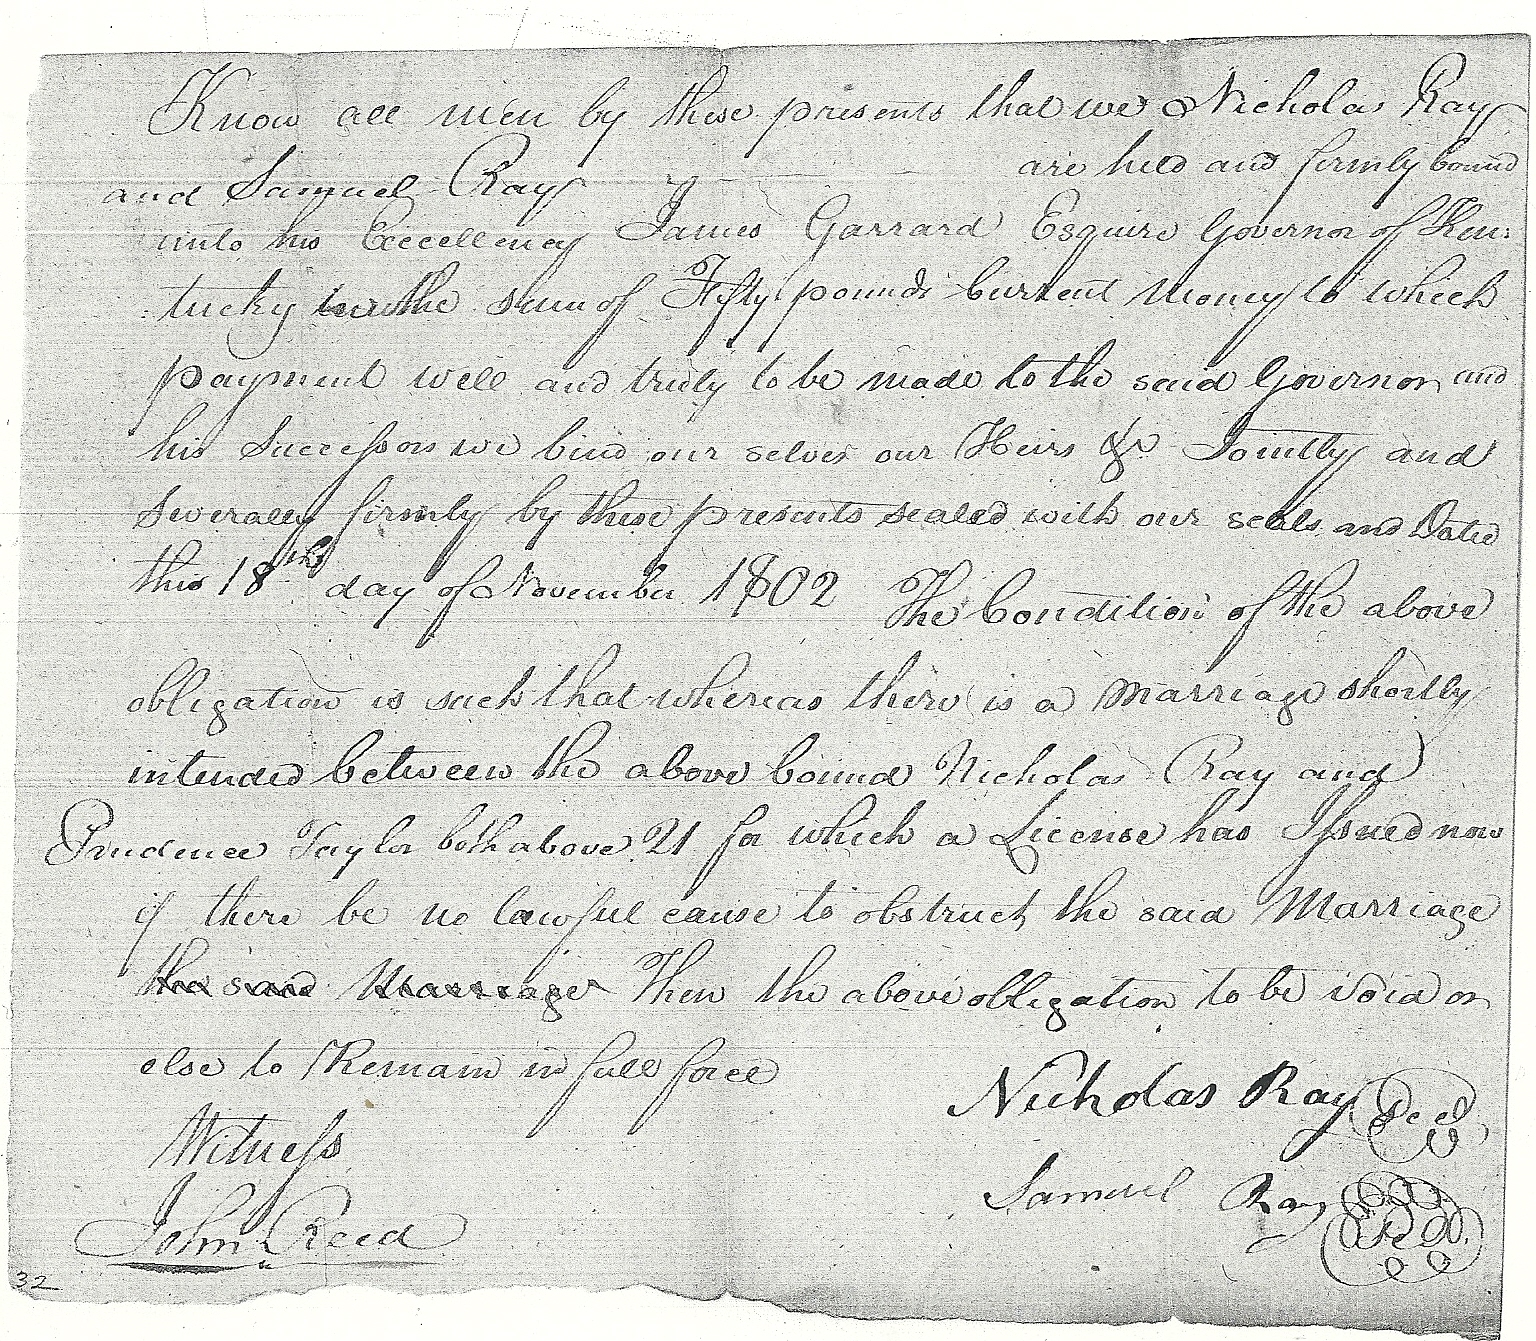 Know all men by these presents that we Nicholas Ray
and Samuel Ray are held and firmly bound
unto his Excellency James Garrard Esquire Governor of Ken:
:tucky in the sum of Fifty pounds Current Money to which
payment well and truly to be made to the said Governor and
his Successors we bind our selves our Heirs &c Jointly and
Severally firmly by these presents sealed with our seals and Dated
this 18th day of November 1802 The Condition of the above
obligation is such that whereas there is a Marriage shortly
intended between the above bound Nicholas Ray and
Prudence Taylor both above 21 for which a License has Issued now
if there be no lawful cause to obstruct the said Marriage
the said Marriage Then the above obligation to be void or
else to Remain in full force
Nicholas Ray Seal
Witness
Samuel Ray Seal
John Reed
32